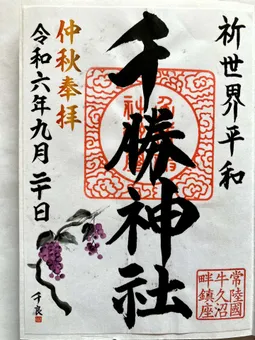 祈世界平和
千勝神社
仲秋奉拝
令和六年九月二十日
常陸國
牛久沼
畔鎮座